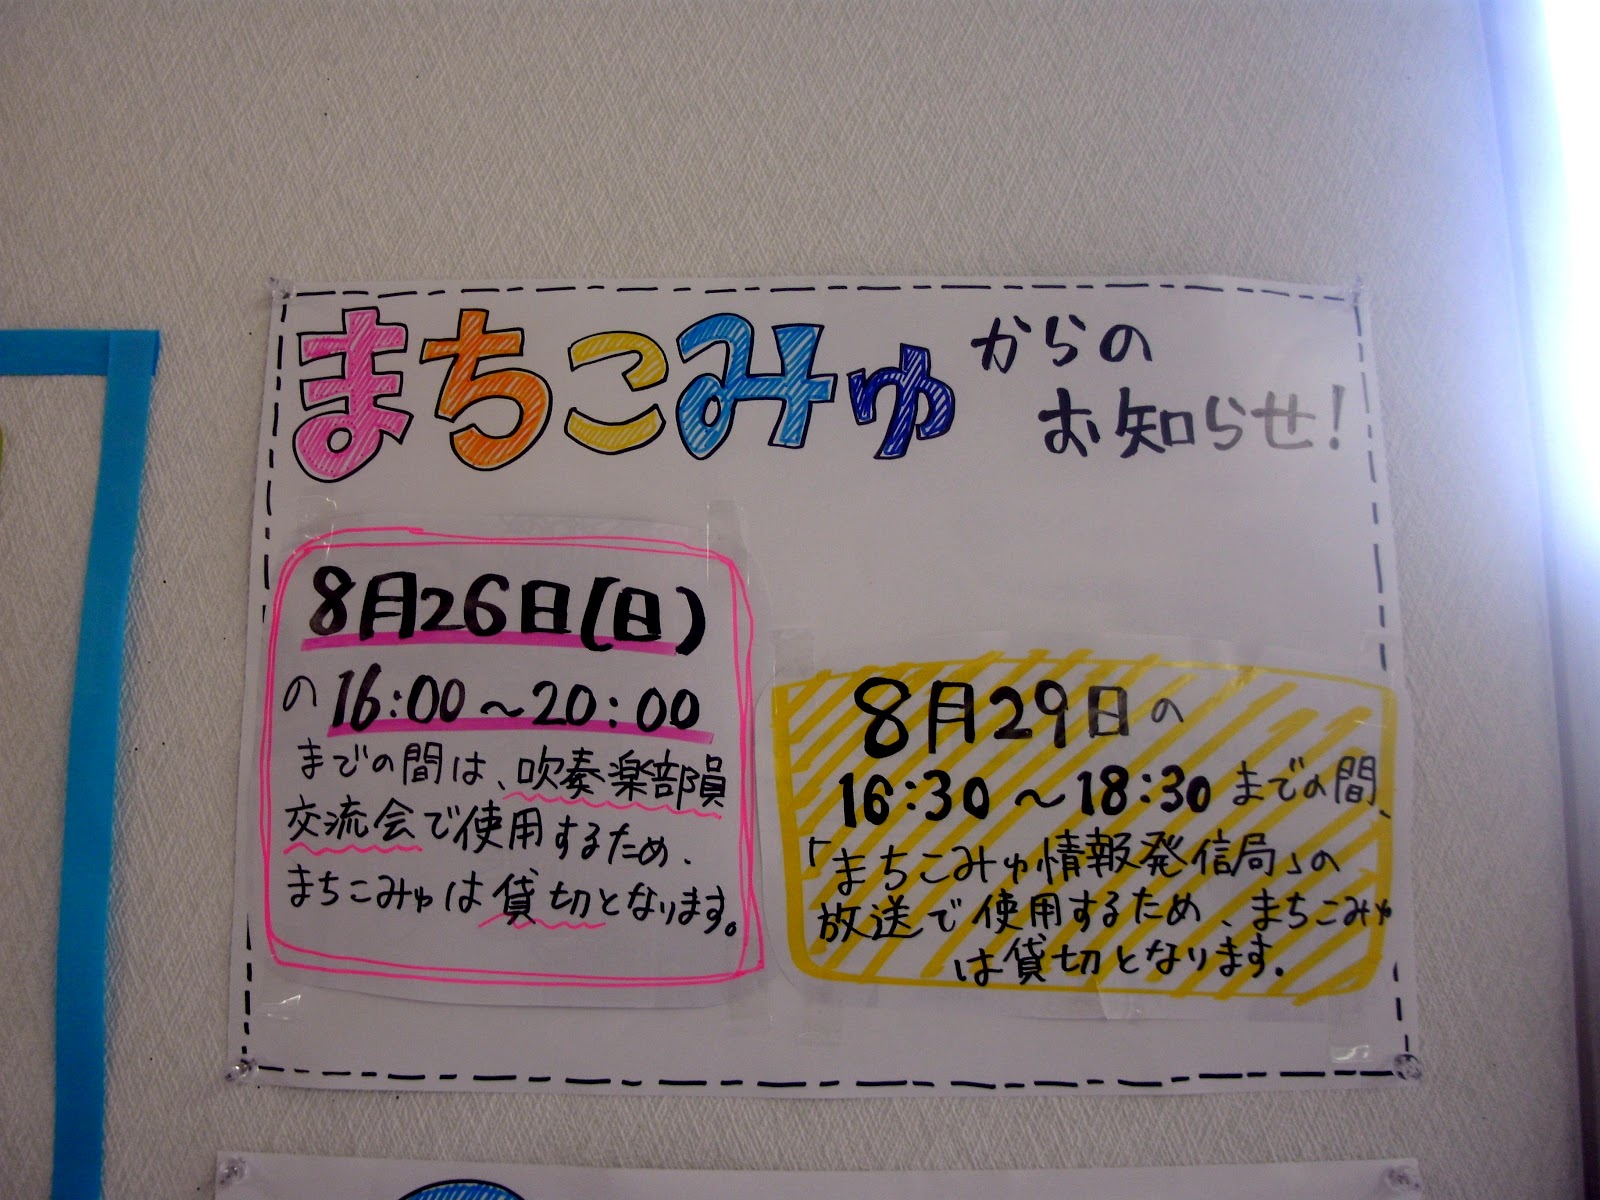 まちこみゅからの
お知らせ!
8月26日(日)
の16:00~20:00
までの間は、吹奏楽部員
交流会で使用するため、
まちこみゅは貸切となります。
8月29日の
16:30~18:30までの間、
「まちこみゅ情報発信局」の
放送で使用するため、まちこみゅ
は貸切となります。